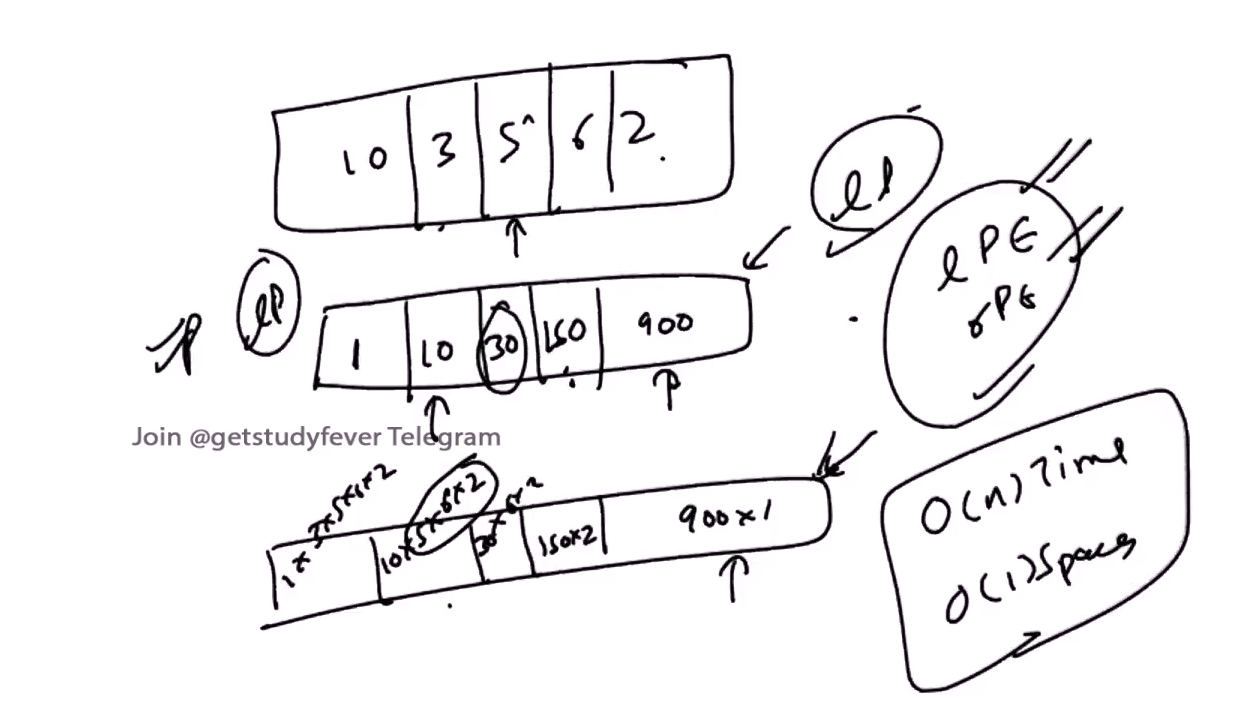 10 3 5 6 2
lP
lPE
rPE
lP
1 10 30 150 900
Join @getstudyfever Telegram
1×3×5×6×2 10×5×6×2 30×6×2 150×2 900×1
O(n) Time
O(1) Space